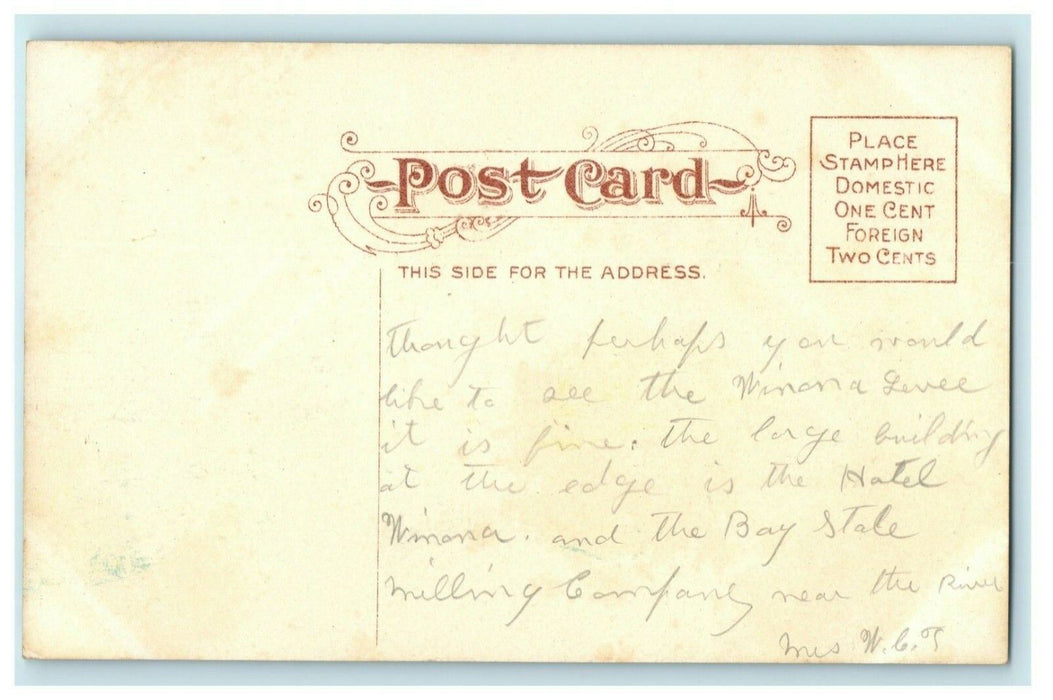 Post Card
PLACE
STAMP HERE
DOMESTIC
ONE CENT
FOREIGN
TWO CENTS
THIS SIDE FOR THE ADDRESS.
thought perhaps you would
like to see the Winona Levee
it is fine. the large building
at the edge is the Hotel
Winona. and the Bay State
Milling Company near the River
Mrs W.C.T